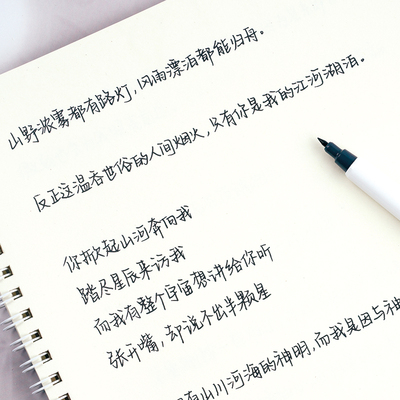 山野浓雾都有路灯，风雨漂泊都能归舟。
反正这温吞也俗的人间烟火，只有你是我的江河湖泊。
你掀起山河奔向我
踏尽星辰来访我
而我有整个宇宙想讲给你听
张开嘴，却说不出半颗星
有山川河海的神明，而我是因与神